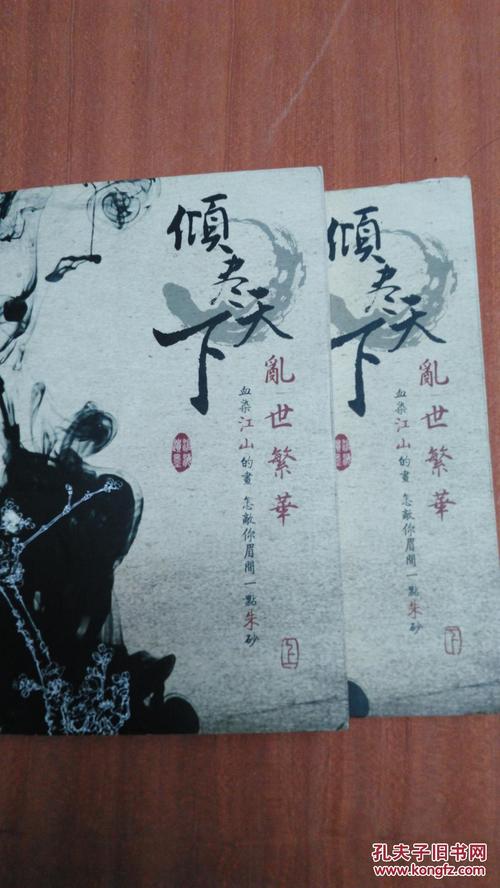 傾尽天下
亂世繁華
血染江山的畫 怎敵你眉間一點朱砂
上
傾尽天下
亂世繁華
血染江山的畫 怎敵你眉間一點朱砂
下
孔夫子旧书网
www.kongfz.com